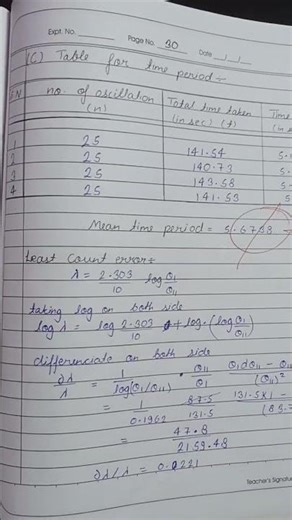 Expt. No.
Page No. 30
Date
(C) Table for time period÷
S.N no. of oscillation (n) Total time taken (in sec) (t) Time
1 25 141.54 5.
2 25 140.73 5.
3 25 143.58 5.
4 25 141.53 5
Mean time period = 5.6738
Least Count error÷
λ = 2.303/10 log θ1/θ11
taking log on both side
log λ = log 2.303/10 + log (log θ1/θ11)
differenciate on both side
∂λ/λ = 1/log(θ1/θ11) · θ11/θ1 θ1dθ11 - θ11/(θ11)²
= 1/0.1962 87.5/131.5 131.5x1 -
= 47.8/2159.48
∂λ/λ = 0.0221
Teacher's Signatur